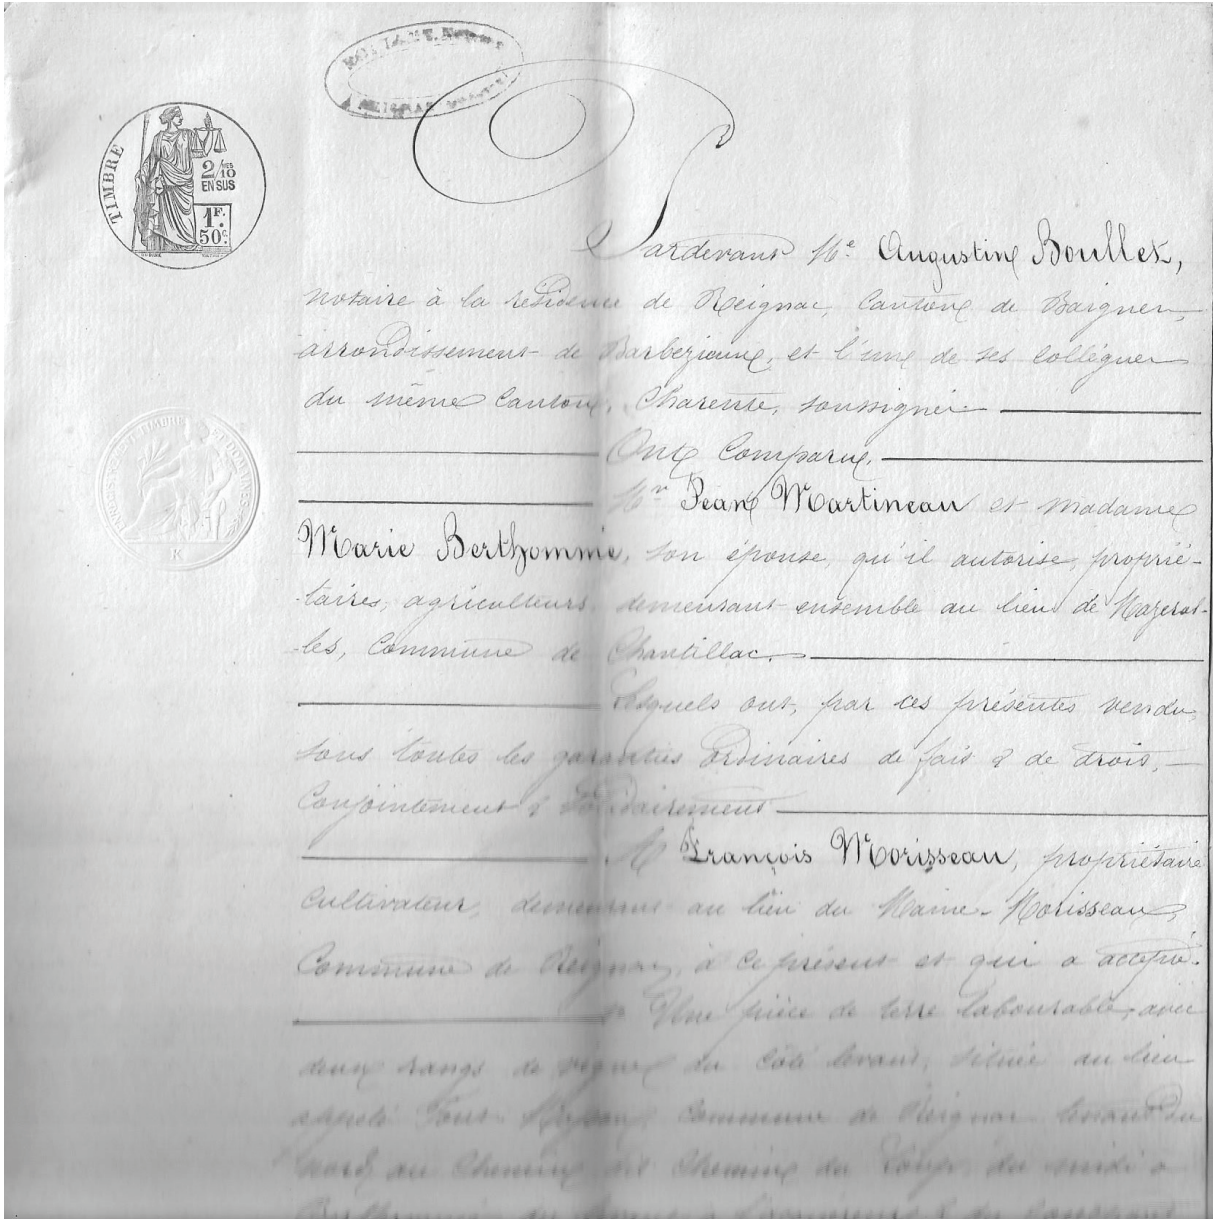 TIMBRE
2/10 MES
EN SUS
1F.
50c.
Pardevant Me Augustin Boullet,
notaire à la résidence de Reignac, Canton de Baignes,
arrondissement de Barbezieux, et l'un de ses collègues
du même Canton, Charente, soussignés
Ont Comparu,
Mr Jean Martineau et madame
Marie Berthommé, son épouse, qu'il autorise, proprié-
-taires, agriculteurs demeurant ensemble au lieu de Mazerol-
-les, Commune de Chantillac.
Lesquels ont, par ces présentes vendu,
sous toutes les garanties ordinaires de fait & de droit,
Conjointement & Solidairement
M François Morisseau, propriétaire
Cultivateur, demeurant au lieu du Maine-Morisseau,
Commune de Reignac, à ce présent et qui a accepté.
Une pièce de terre labourable, avec
deux rangs de vigne du Côté levant, située au lieu
appelé Commune de Reignac tenant du
nord au Chemin dit Chemin du Loup, du midi à
K